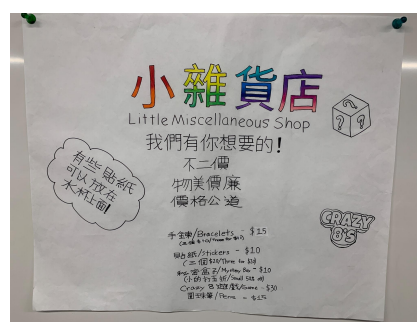 小雜貨店
Little Miscellaneous Shop
我們有你想要的!
不二價
物美價廉
價格公道
有些貼紙
可以放在
水杯上面!
? ? ?
CRAZY
8'S
手鏈/Bracelets - $15
貼紙/Stickers - $10
(三個$25/Three for $25)
/Mystery Box - $10
(小的打五折/Small 50% off)
Crazy 8 遊戲/Game - $30
圓珠筆/Pens - $15